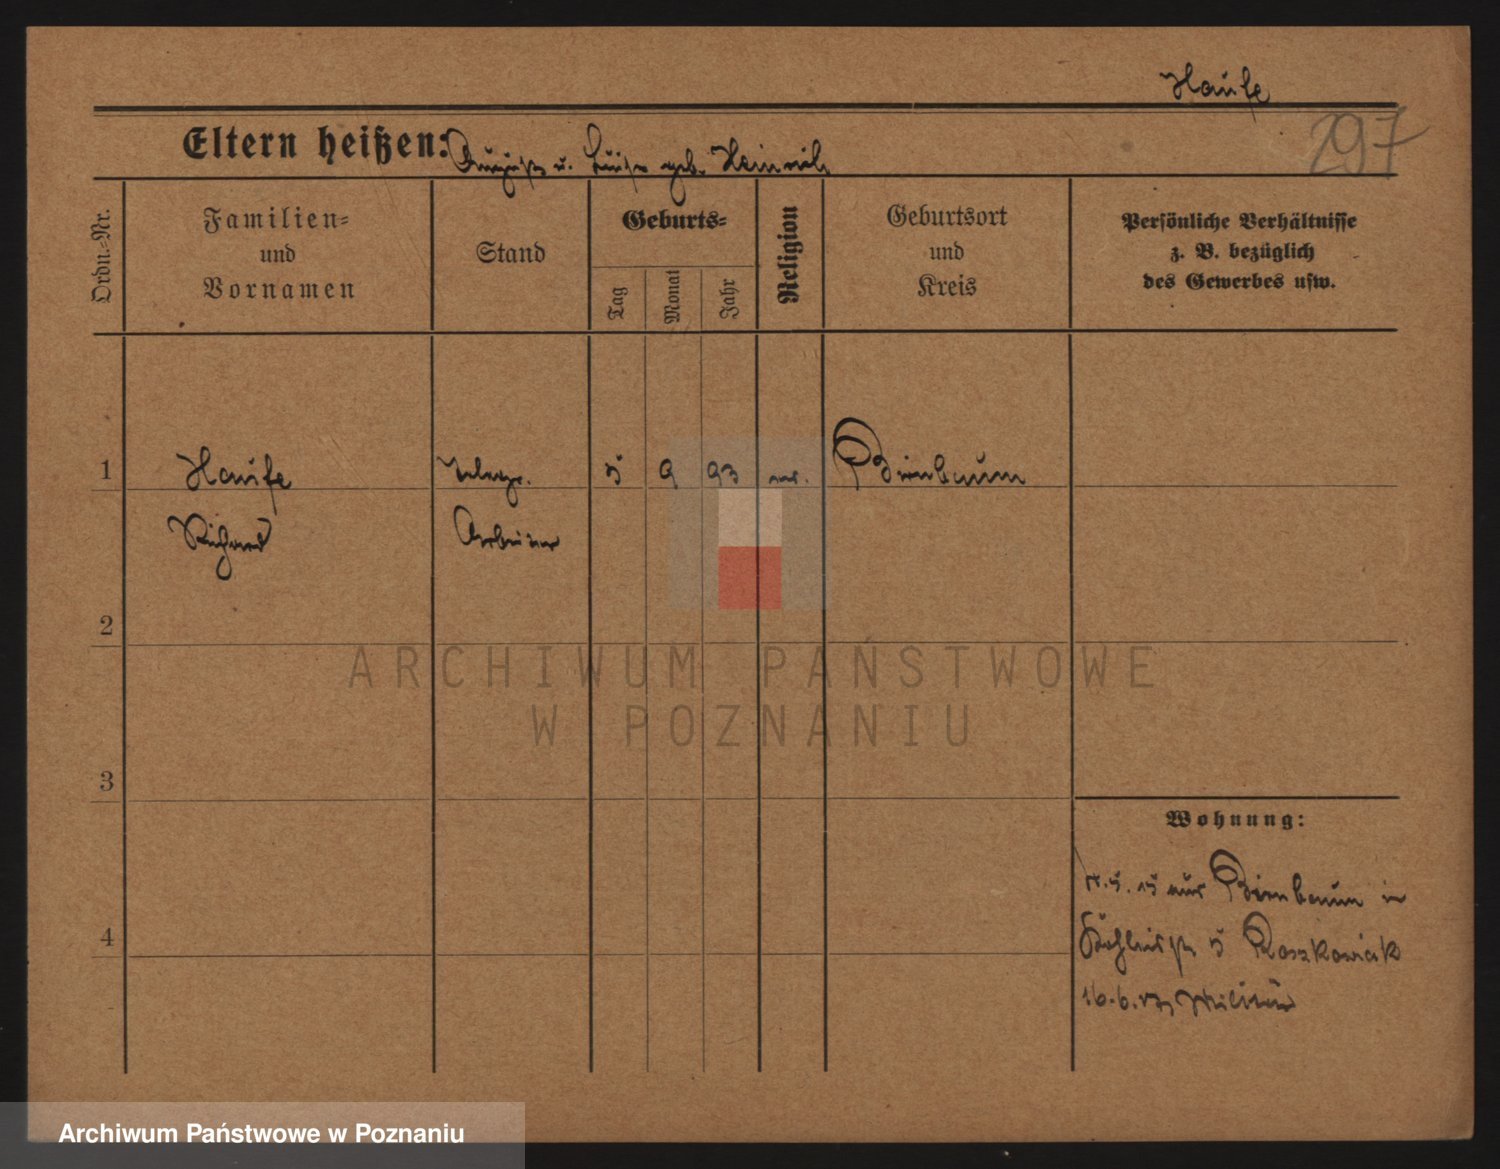 Haufe
297
Eltern heißen: August u. Luise geb. Heinrich
Ordn.-Nr.
Familien- und Vornamen
Stand
Geburts-
Tag
Monat
Jahr
Religion
Geburtsort und Kreis
Persönliche Verhältnisse
z. B. bezüglich
des Gewerbes usw.
1 Haufe Telegr. 5 9 93 ev. Birnbaum
Richard Arbeiter
2
3
Wohnung:
5. 15 aus Birnbaum in
4
5 Roszkowiak
16.6. Militär
ARCHIWUM PAŃSTWOWE
W POZNANIU
Archiwum Państwowe w Poznaniu